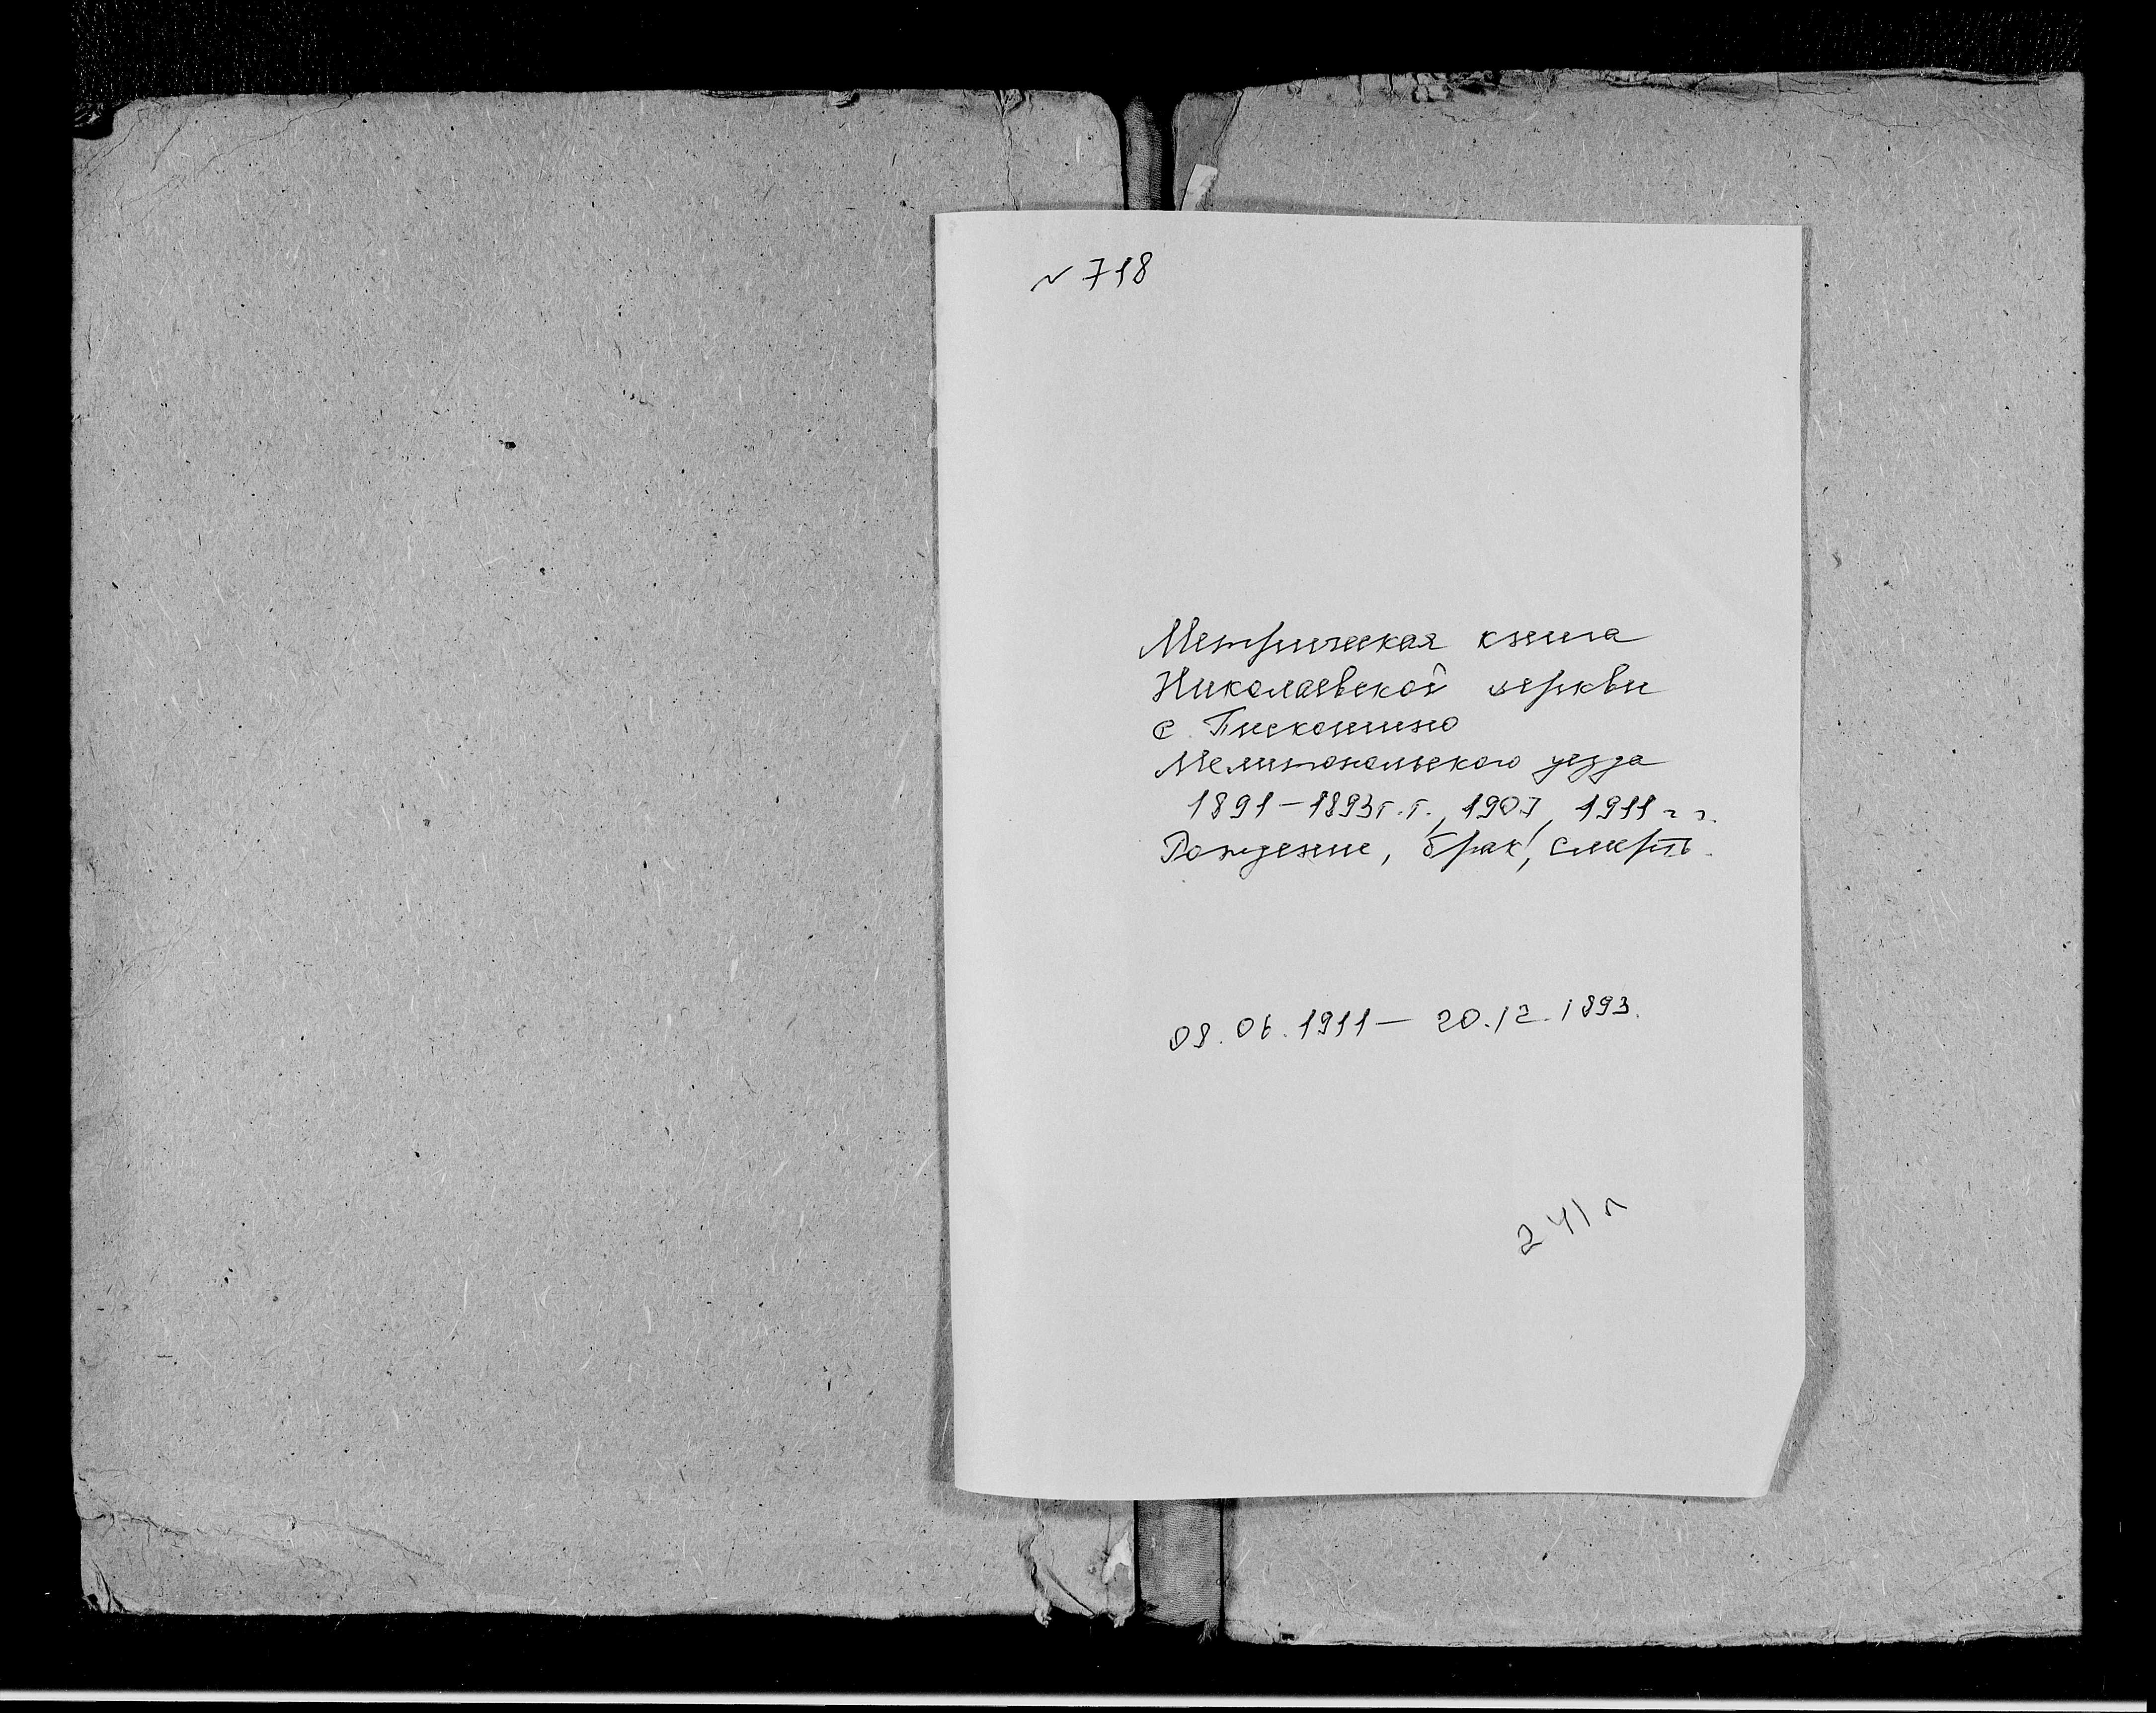 № 718
Метрическая книга
Николаевской церкви
с. Пискошино
Мелитопольского уезда
1891-1893г.г., 1907, 1911 г г.
Рождение, брак, смерть.
08. 06. 1911 — 20. 12. 1893.
241 л